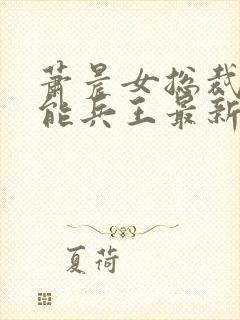 萧晨女总裁
能兵王最新
夏荷